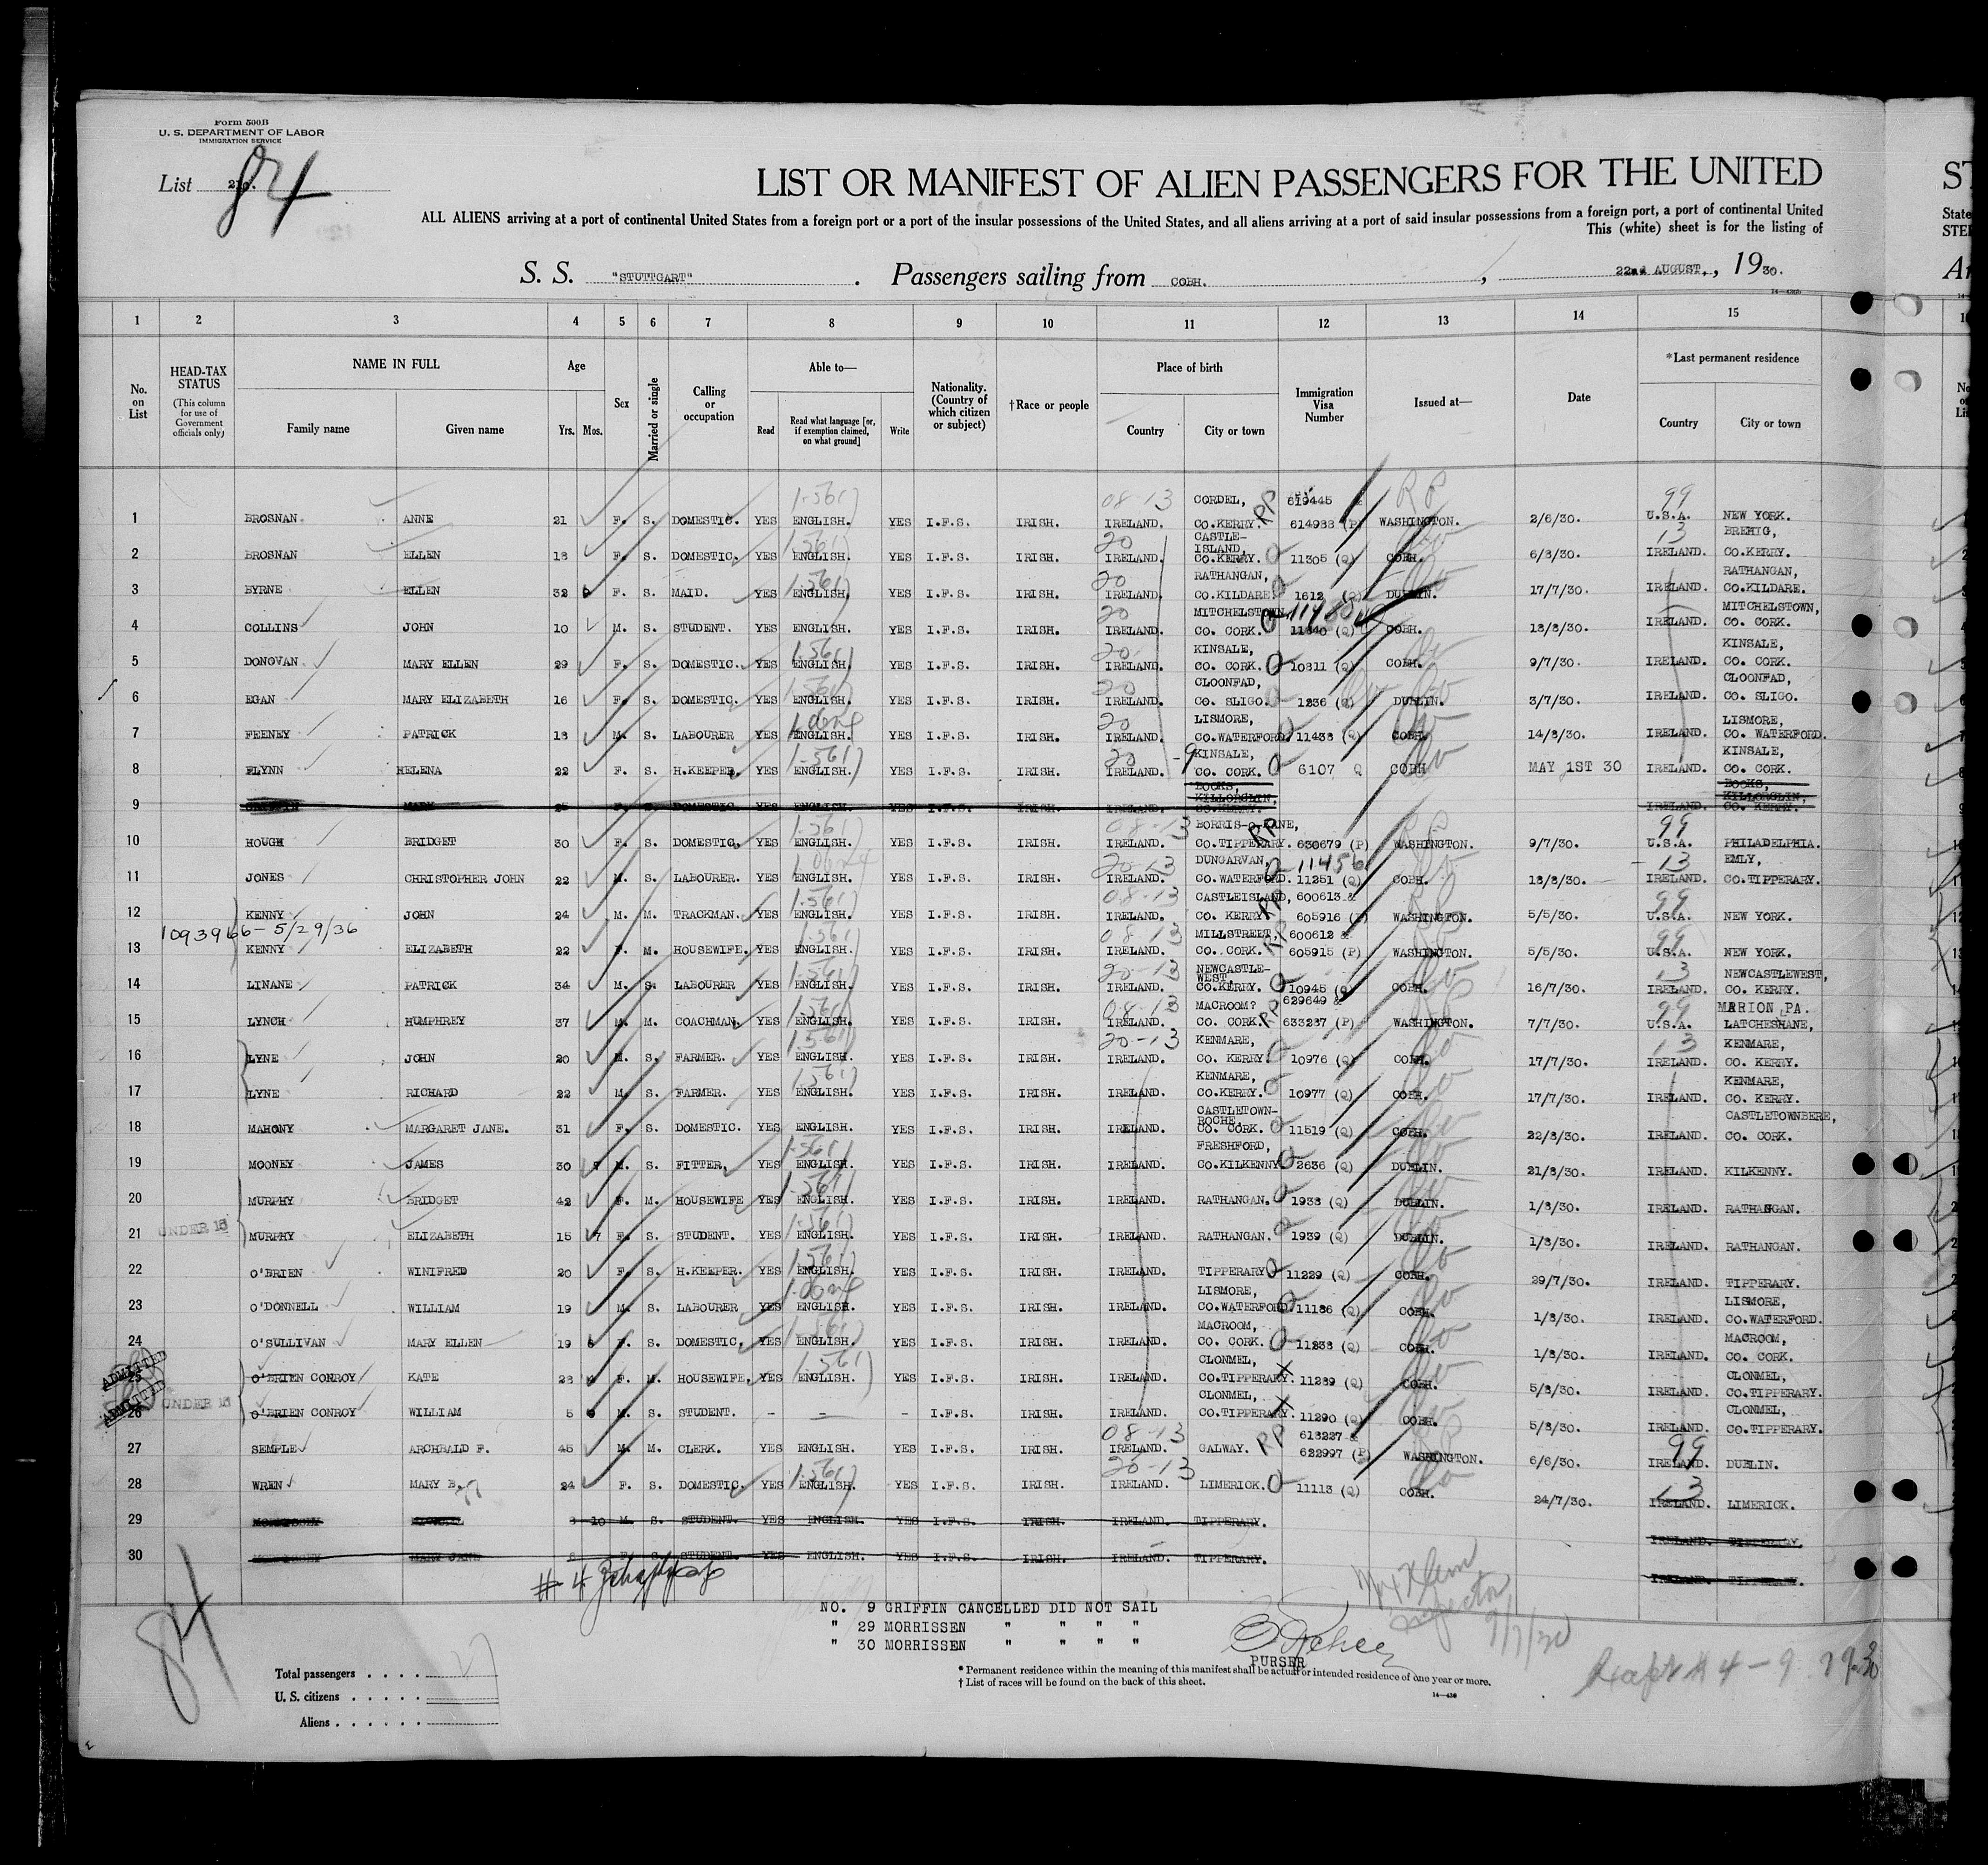 Form 500B
U. S. DEPARTMENT OF LABOR
IMMIGRATION SERVICE
List 84
LIST OR MANIFEST OF ALIEN PASSENGERS FOR THE UNITED
ST
ALL ALIENS arriving at a port of continental United States from a foreign port or a port of the insular possessions of the United States, and all aliens arriving at a port of said insular possessions from a foreign port, a port of continental United
State
This (white) sheet is for the listing of
STE
S. S. "STUTTGART". Passengers sailing from COBH. , 22nd AUGUST., 1930.
1 2 3 4 5 6 7 8 9 10 11 12 13 14 15
No. on List
HEAD-TAX STATUS (This column for use of Government officials only)
NAME IN FULL Family name Given name
Age Yrs. Mos.
Sex
Married or single
Calling or occupation
Able to— Read Read what language [or, if exemption claimed, on what ground] Write
Nationality. (Country of which citizen or subject)
†Race or people
Place of birth Country City or town
Immigration Visa Number
Issued at—
Date
*Last permanent residence Country City or town
1 BROSNAN ANNE 21 F. S. DOMESTIC. YES ENGLISH. YES I.F.S. IRISH. IRELAND. CORDEL, CO.KERRY. 619445 & 614933 (P) WASHINGTON. 2/6/30. U.S.A. NEW YORK.
2 BROSNAN ELLEN 18 F. S. DOMESTIC. YES ENGLISH. YES I.F.S. IRISH. IRELAND. CASTLE-ISLAND, CO.KERRY. 11305 (Q) COBH. 6/8/30. IRELAND. BREHIG, CO.KERRY.
3 BYRNE ELLEN 32 F. S. MAID. YES ENGLISH. YES I.F.S. IRISH. IRELAND. RATHANGAN, CO.KILDARE. 1612 (Q) DUBLIN. 17/7/30. IRELAND. RATHANGAN, CO.KILDARE.
4 COLLINS JOHN 10 M. S. STUDENT. YES ENGLISH. YES I.F.S. IRISH. IRELAND. MITCHELSTOWN, CO. CORK. 11340 (Q) COBH. 18/8/30. IRELAND. MITCHELSTOWN, CO. CORK.
5 DONOVAN MARY ELLEN 29 F. S. DOMESTIC. YES ENGLISH. YES I.F.S. IRISH. IRELAND. KINSALE, CO. CORK. 10811 (Q) COBH. 9/7/30. IRELAND. KINSALE, CO. CORK.
6 EGAN MARY ELIZABETH 16 F. S. DOMESTIC. YES ENGLISH. YES I.F.S. IRISH. IRELAND. CLOONFAD, CO. SLIGO. 1236 (Q) DUBLIN. 3/7/30. IRELAND. CLOONFAD, CO. SLIGO.
7 FEENEY PATRICK 18 M. S. LABOURER YES ENGLISH. YES I.F.S. IRISH. IRELAND. LISMORE, CO.WATERFORD. 11438 (Q) COBH. 14/8/30. IRELAND. LISMORE, CO. WATERFORD.
8 FLYNN HELENA 22 F. S. H.KEEPER. YES ENGLISH. YES I.F.S. IRISH. IRELAND. KINSALE, CO. CORK. 6107 Q COBH MAY 1ST 30 IRELAND. KINSALE, CO. CORK.
9 MARY DOMESTIC YES ENGLISH. YES I.F.S. IRISH. IRELAND. KILLORGLIN, CO.KERRY. IRELAND. KILLORGLIN, CO. KERRY.
10 HOUGH BRIDGET 30 F. S. DOMESTIC. YES ENGLISH. YES I.F.S. IRISH. IRELAND. BORRIS-O-KANE, CO.TIPPERARY. 630679 (P) WASHINGTON. 9/7/30. U.S.A. PHILADELPHIA.
11 JONES CHRISTOPHER JOHN 22 M. S. LABOURER. YES ENGLISH. YES I.F.S. IRISH. IRELAND. DUNGARVAN, CO.WATERFORD. 11456 11251 (Q) COBH. 18/8/30. IRELAND. EMLY, CO.TIPPERARY.
12 KENNY JOHN 24 M. M. TRACKMAN. YES ENGLISH. YES I.F.S. IRISH. IRELAND. CASTLEISLAND, CO. KERRY. 600613 & 605916 (P) WASHINGTON. 5/5/30. U.S.A. NEW YORK.
1093966 - 5/29/36
13 KENNY ELIZABETH 22 F. M. HOUSEWIFE. YES ENGLISH. YES I.F.S. IRISH. IRELAND. MILLSTREET, CO. CORK. 600612 & 605915 (P) WASHINGTON. 5/5/30. U.S.A. NEW YORK.
14 LINANE PATRICK 34 M. S. LABOURER YES ENGLISH. YES I.F.S. IRISH. IRELAND. NEWCASTLE-WEST, CO.KERRY. 10945 (Q) COBH. 16/7/30. IRELAND. NEWCASTLEWEST, CO. KERRY.
15 LYNCH HUMPHREY 37 M. M. COACHMAN. YES ENGLISH. YES I.F.S. IRISH. IRELAND. MACROOM? CO. CORK. 629649 & 633237 (P) WASHINGTON. 7/7/30. U.S.A. MARION, PA. LATCHESHANE,
16 LYNE JOHN 20 M. S. FARMER. YES ENGLISH. YES I.F.S. IRISH. IRELAND. KENMARE, CO. KERRY. 10976 (Q) COBH. 17/7/30. IRELAND. KENMARE, CO. KERRY.
17 LYNE RICHARD 22 M. S. FARMER. YES ENGLISH. YES I.F.S. IRISH. IRELAND. KENMARE, CO.KERRY. 10977 (Q) COBH. 17/7/30. IRELAND. KENMARE, CO. KERRY.
18 MAHONY MARGARET JANE. 31 F. S. DOMESTIC. YES ENGLISH. YES I.F.S. IRISH. IRELAND. CASTLETOWN-ROCHE, CO. CORK. 11519 (Q) COBH. 22/8/30. IRELAND. CASTLETOWNBERE, CO. CORK.
19 MOONEY JAMES 30 7 M. S. FITTER. YES ENGLISH. YES I.F.S. IRISH. IRELAND. FRESHFORD, CO.KILKENNY 2636 (Q) DUBLIN. 21/8/30. IRELAND. KILKENNY.
20 MURPHY BRIDGET 42 F. M. HOUSEWIFE YES ENGLISH. YES I.F.S. IRISH. IRELAND. RATHANGAN. 1938 (Q) DUBLIN. 1/8/30. IRELAND. RATHANGAN.
21 UNDER 16 MURPHY ELIZABETH 15 7 F. S. STUDENT. YES ENGLISH. YES I.F.S. IRISH. IRELAND. RATHANGAN. 1939 (Q) DUBLIN. 1/8/30. IRELAND. RATHANGAN.
22 O'BRIEN WINIFRED 20 F. S. H.KEEPER. YES ENGLISH. YES I.F.S. IRISH. IRELAND. TIPPERARY 11229 (Q) COBH. 29/7/30. IRELAND. TIPPERARY.
23 O'DONNELL WILLIAM 19 M. S. LABOURER YES ENGLISH. YES I.F.S. IRISH. IRELAND. LISMORE, CO.WATERFORD 11186 (Q) COBH. 1/8/30. IRELAND. LISMORE, CO.WATERFORD.
24 O'SULLIVAN MARY ELLEN 19 6 F. S. DOMESTIC. YES ENGLISH. YES I.F.S. IRISH. IRELAND. MACROOM, CO. CORK. 11238 (Q) COBH. 1/8/30. IRELAND. MACROOM, CO. CORK.
ADMITTED 25 O'BRIEN CONROY KATE 28 F. M. HOUSEWIFE. YES ENGLISH. YES I.F.S. IRISH. IRELAND. CLONMEL, CO.TIPPERARY. 11289 (Q) COBH. 5/8/30. IRELAND. CLONMEL, CO.TIPPERARY.
ADMITTED 26 UNDER 16 O'BRIEN CONROY WILLIAM 5 M. S. STUDENT. - - - I.F.S. IRISH. IRELAND. CLONMEL, CO.TIPPERARY. 11290 (Q) COBH. 5/8/30. IRELAND. CLONMEL, CO.TIPPERARY.
27 SEMPLE ARCHBALD F. 45 M. M. CLERK. YES ENGLISH. YES I.F.S. IRISH. IRELAND. GALWAY. 613227 & 622997 (P) WASHINGTON. 6/6/30. IRELAND. DUBLIN.
28 WREN MARY B. 24 F. S. DOMESTIC. YES ENGLISH. YES I.F.S. IRISH. IRELAND. LIMERICK. 11113 (Q) COBH. 24/7/30. IRELAND. LIMERICK.
29 10 M. S. STUDENT. YES ENGLISH. YES I.F.S. IRISH. IRELAND. TIPPERARY. IRELAND. TIPPERARY.
30 MARY JANE F. S. STUDENT. YES ENGLISH. YES I.F.S. IRISH. IRELAND. TIPPERARY. IRELAND. TIPPERARY.
NO. 9 GRIFFIN CANCELLED DID NOT SAIL
" 29 MORRISSEN " " " "
" 30 MORRISSEN " " " "
PURSER
84
Total passengers
U. S. citizens
Aliens
* Permanent residence within the meaning of this manifest shall be actual or intended residence of one year or more.
† List of races will be found on the back of this sheet.
14—430